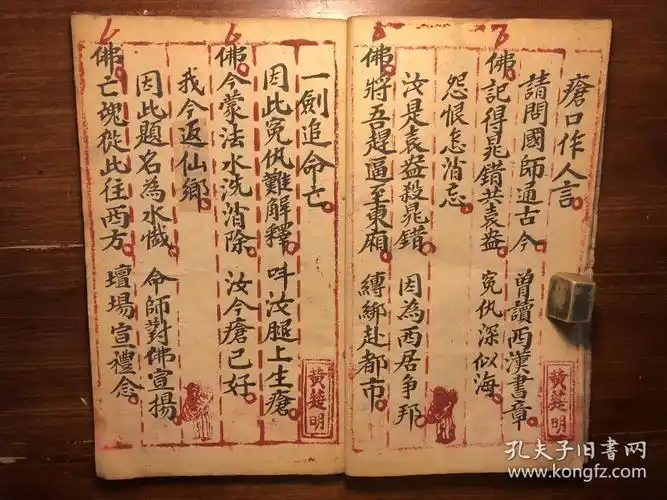 瘡口作人言。
請問國師通古今 曾讀西漢書章。
佛。記得晁錯共袁盎。 冤仇深似海。
怨恨怎消忘。
汝是袁盎殺晁錯 因為西居争邦。
佛。將吾趕逼至東廂 縳綁赴都市。
一劍追命亡。
因此冤仇難解釋。 呌汝腿上生瘡。
佛。今蒙法水洗消除 汝今瘡已好
我今返仙鄉。
因此題名為水懺 命師對佛宣揚。
佛。亡魂從此往西方。 壇場宣禮念。
黃楚明
黃楚明
7
8
6
孔夫子旧书网
www.kongfz.com